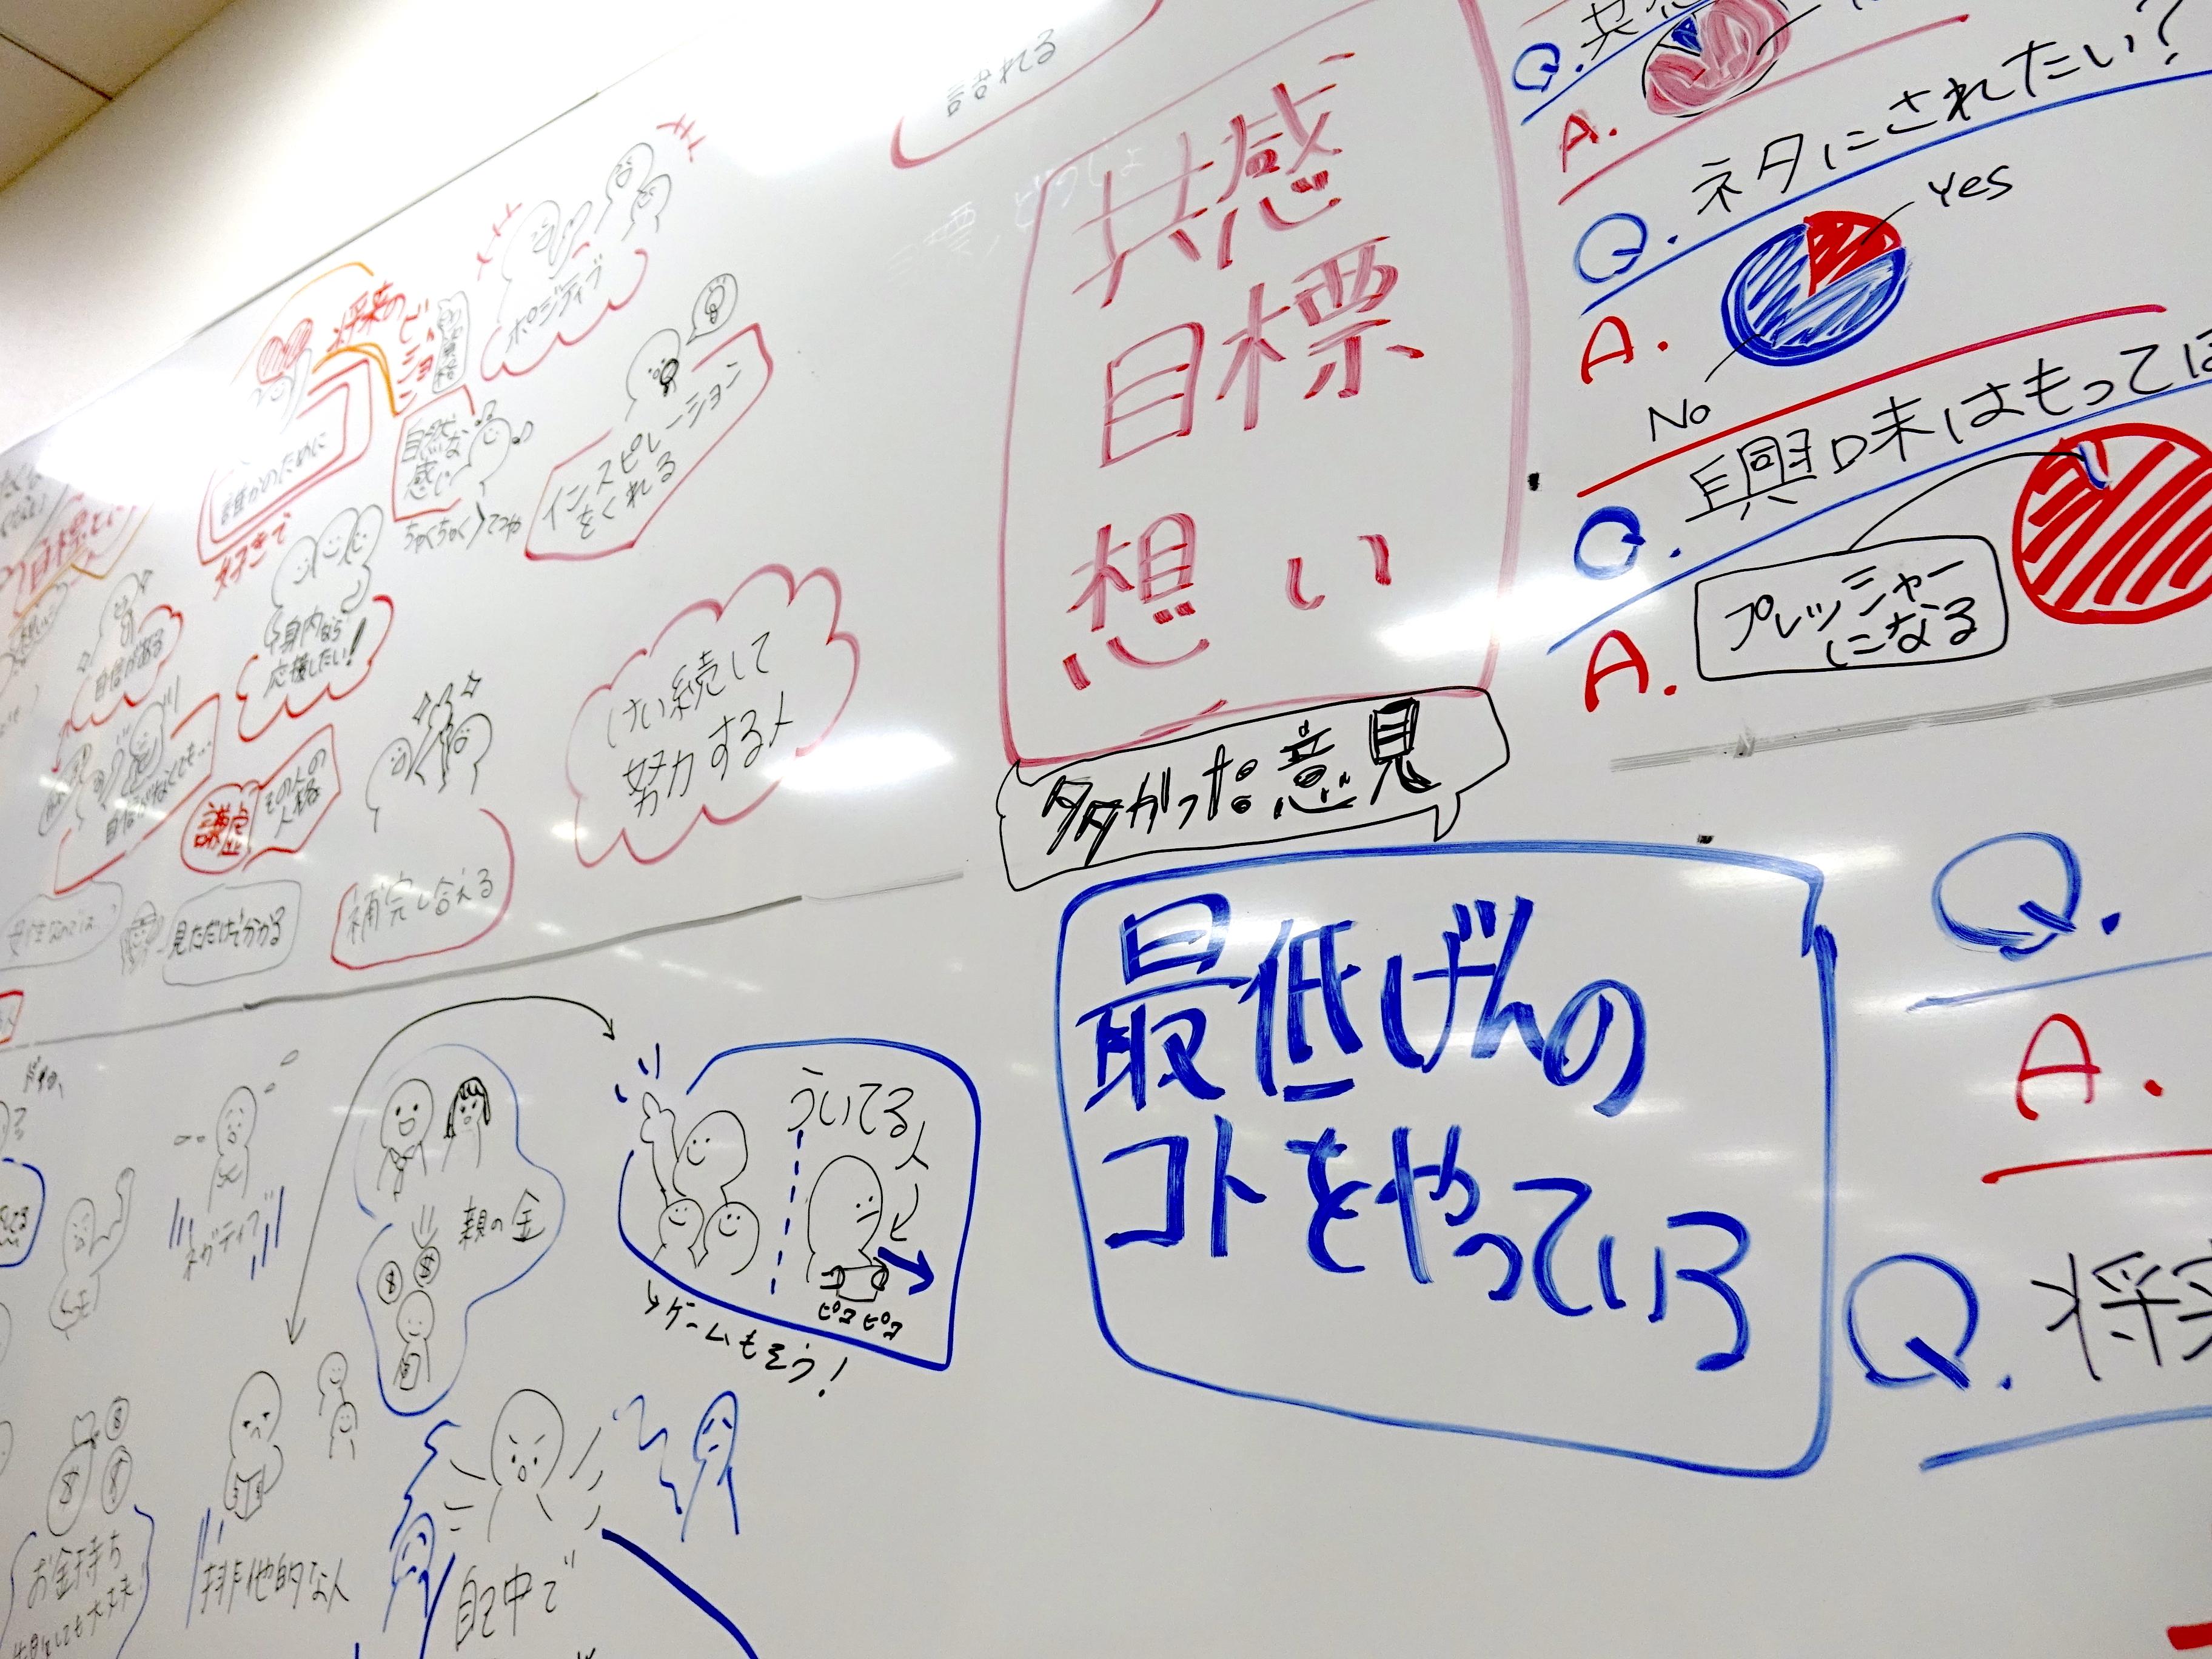 語れる
共感
目標
想い
多かった意見
最低げんの
コトをやっている
Q.
A.
Q. ネタにされたい?
Yes
A.
No
Q. 興味はもってほ
A.
プレッシャー
になる
Q.
A.
Q. 将来
将来の
ビジョン
ポジティブ
誰かのために
自然な
感じ
インスピレーション
をくれる
好きで
身内なら
応援したい!
自信が溢る
自信がなくても…
謙虚
その人の
人格
見ただけで分かる
補完し合える
けい続して
努力する人
ネガティブ
親の金
ういてる人
ピコピコ
→ゲームもそう!
お金持ち
排他的な人
自己中で